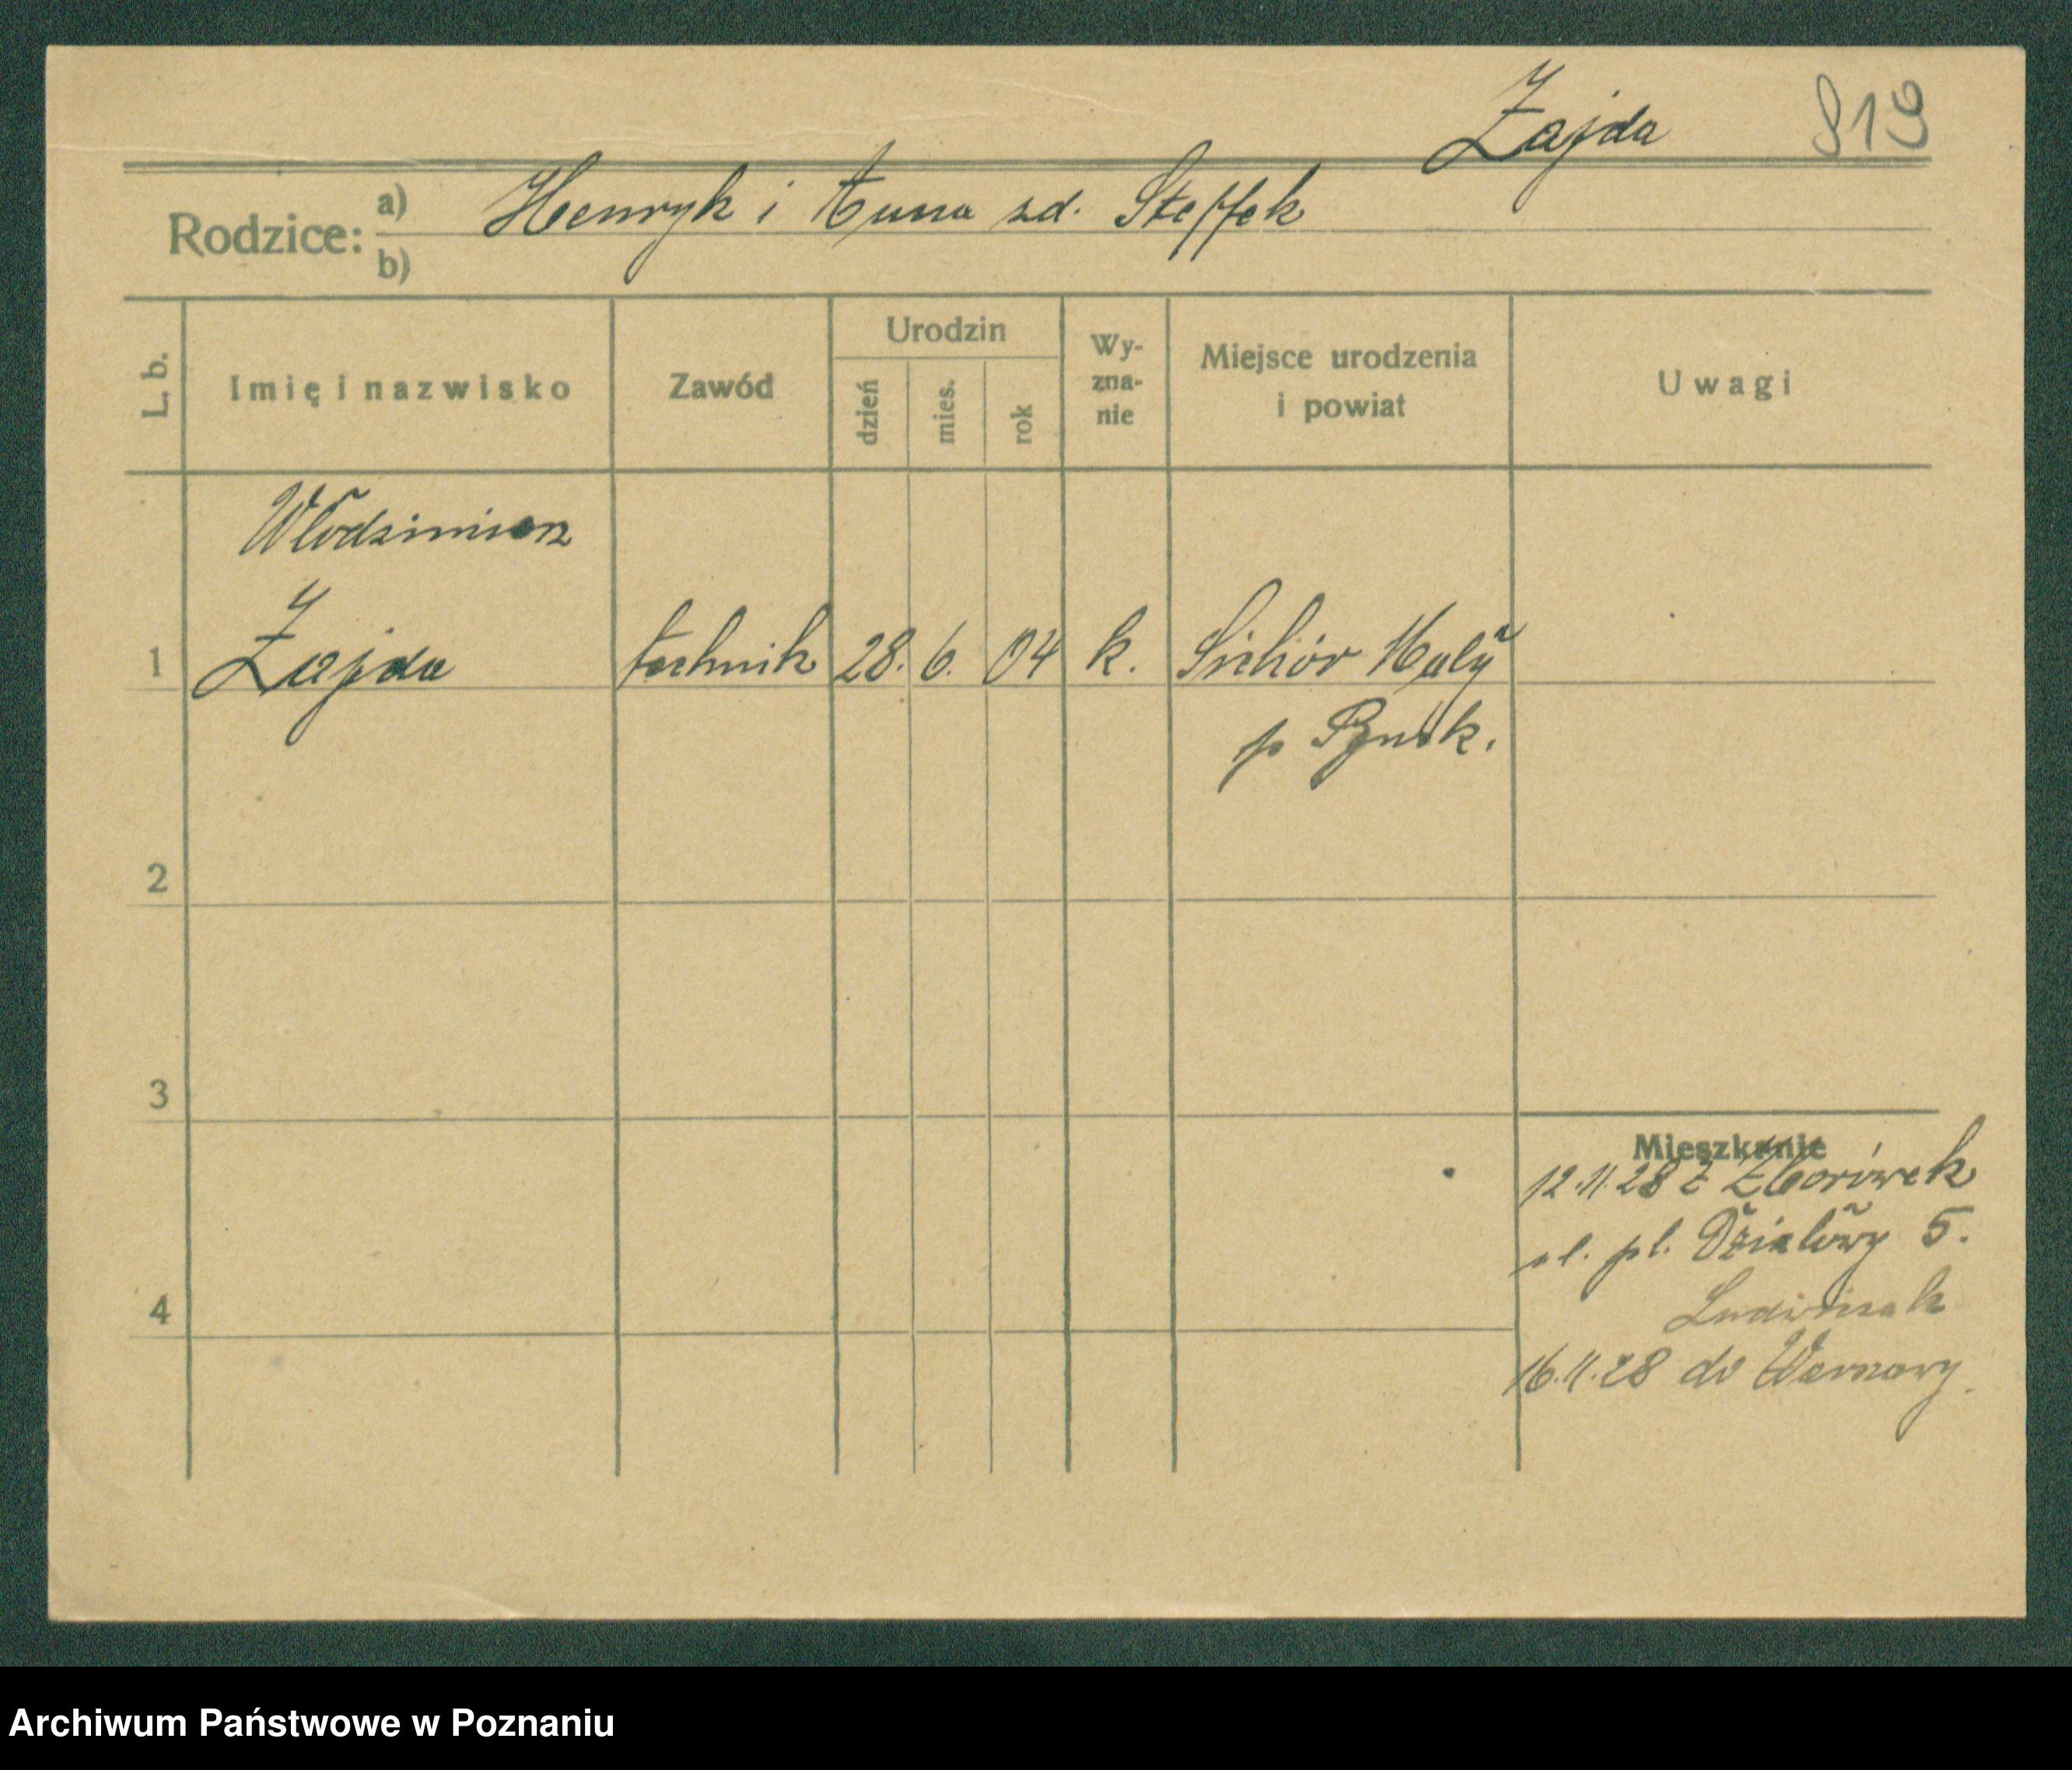 Zajda 819
Rodzice: a) Henryk i Anna zd. Steffek
b)
L. b. Imię i nazwisko Zawód Urodzin dzień mies. rok Wyznanie Miejsce urodzenia i powiat Uwagi
Włodzimierz
1 Zajda technik 28. 6. 04 k. Sichór Mały
p
2
3
Mieszkanie
12.11.28 z Zborówek
pl. Działowy 5.
4
16.11.28 do Warszawy.
Archiwum Państwowe w Poznaniu